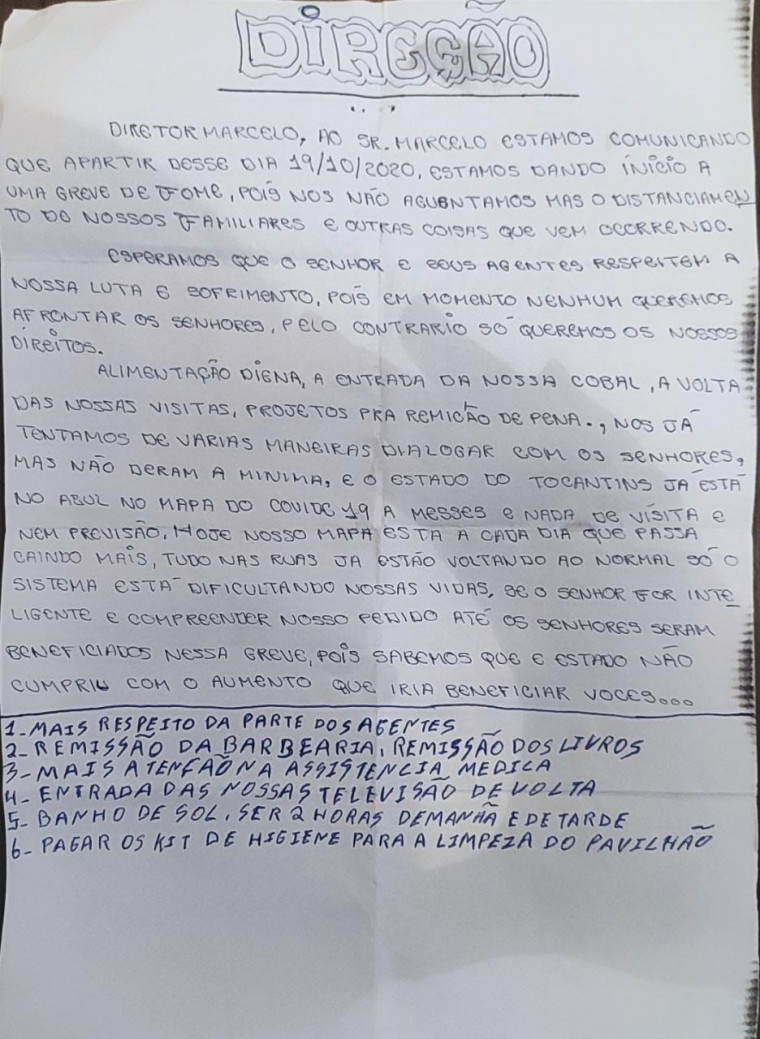 DIREÇÃO
DIRETOR MARCELO, AO SR. MARCELO ESTAMOS COMUNICANDO
QUE APARTIR DESSE DIA 19/10/2020, ESTAMOS DANDO ÍNICIO A
UMA GREVE DE FOME, POIS NOS NÃO AGUENTAMOS MAS O DISTANCIAMEN
TO DE NOSSOS FAMILIARES E OUTRAS COISAS QUE VEM OCORRENDO.
ESPERAMOS QUE O SENHOR E SEUS AGENTES RESPEITEM A
NOSSA LUTA E SOFRIMENTO, POIS EM MOMENTO NENHUM QUEREMOS
AFRONTAR OS SENHORES, PELO CONTRARIO SÓ QUEREMOS OS NOSSOS
DIREITOS.
ALIMENTAÇÃO DIGNA, A ENTRADA DA NOSSA COBAL, A VOLTA
DAS NOSSAS VISITAS, PROJETOS PRA REMICÃO DE PENA., NOS JÁ
TENTAMOS DE VARIAS MANEIRAS DIALOGAR COM OS SENHORES,
MAS NÃO DERAM A MINIMA, E O ESTADO DO TOCANTINS JÁ ESTÁ
NO AZUL NO MAPA DO COVIDE 19 A MESSES E NADA DE VÍSITA E
NEM PREVISÃO, HOJE NOSSO MAPA ESTA A CADA DIA QUE PASSA
CAINDO MAIS, TUDO NAS RUAS JA ESTÃO VOLTANDO AO NORMAL SÓ O
SISTEMA ESTÁ DIFICULTANDO NOSSAS VIDAS, SE O SENHOR FOR INTE
LIGENTE E COMPREENDER NOSSO PEDIDO ATÉ OS SENHORES SERAM
BENEFICIADOS NESSA GREVE, POIS SABEMOS QUE E ESTADO NÃO
CUMPRIU COM O AUMENTO QUE IRIA BENEFICIAR VOCES...
1- MAIS RESPEITO DA PARTE DOS AGENTES
2- REMISSÃO DA BARBEARIA, REMISSÃO DOS LIVROS
3- MAIS ATENÇÃO NA ASSISTENCIA MEDICA
4- ENTRADA DAS NOSSAS TELEVISÃO DE VOLTA
5- BANHO DE SOL, SER 2 HORAS DE MANHÃ E DE TARDE
6- PAGAR OS KIT DE HIGIENE PARA A LIMPEZA DO PAVILHÃO